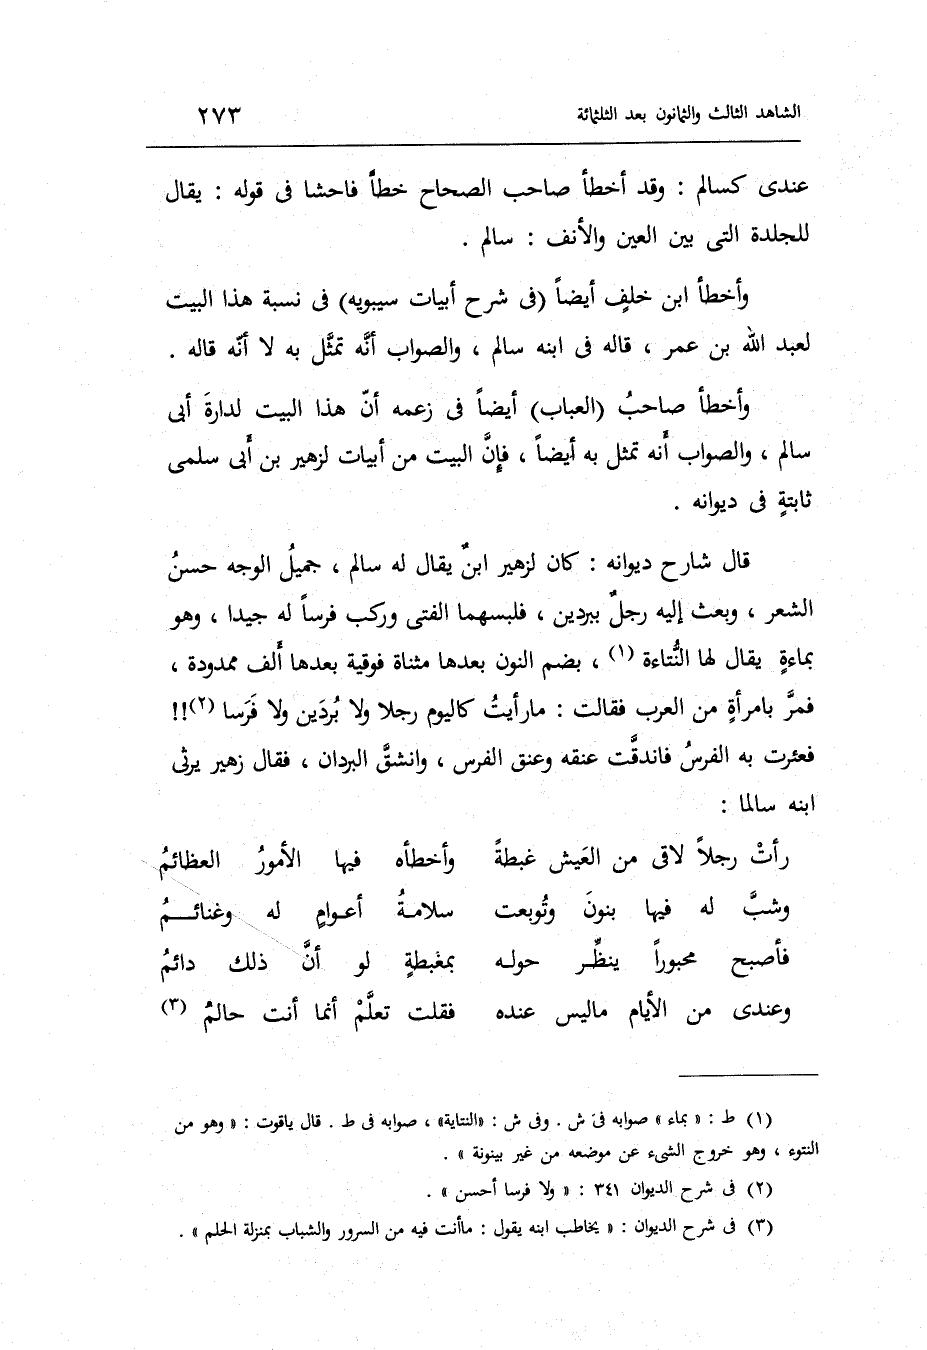 الشاهد الثالث والثمانون بعد الثلثمائة ٢٧٣
عندى كسالم : وقد أخطأ صاحب الصحاح خطأً فاحشا فى قوله : يقال
للجلدة التى بين العين والأنف : سالم .
وأخطأ ابن خلفٍ أيضاً (فى شرح أبيات سيبويه) فى نسبة هذا البيت
لعبد الله بن عمر ، قاله فى ابنه سالم ، والصواب أنَّه تمثَّل به لا أنّه قاله .
وأخطأ صاحبُ (العباب) أيضاً فى زعمه أنّ هذا البيت لدارةَ أبى
سالم ، والصواب أَنه تمثل به أيضاً ، فإِنَّ البيت من أبيات لزهير بن أَبى سلمى
ثابتةٍ فى ديوانه .
قال شارح ديوانه : كان لزهير ابنٌ يقال له سالم ، جميلُ الوجه حسنُ
الشعر ، وبعث إليه رجلٌ ببردين ، فلبسهما الفتى وركب فرساً له جيدا ، وهو
بماءةٍ يقال لها النُّتاءة (١) ، بضم النون بعدها مثناة فوقية بعدها أَلف ممدودة ،
فمرَّ بامرأةٍ من العرب فقالت : مارأيتُ كاليوم رجلا ولا بُردَين ولا فَرَسا (٢)!!
فعثرت به الفرسُ فاندقَّت عنقه وعنق الفرس ، وانشقَّ البردان ، فقال زهير يرثى
ابنه سالما :
رأتْ رجلاً لاقى من العَيش غبطةً وأخطأه فيها الأمورُ العظائمُ
وشبَّ له فيها بنونَ وتُوبعت سلامةُ أعوامٍ له وغنائمُ
فأصبح محبوراً ينظِّر حوله بمغبطةٍ لو أنَّ ذلك دائمُ
وعندى من الأيام ماليس عنده فقلت تعلَّمْ أنما أنت حالمُ (٣)
(١) ط : « بماء » صوابه فى ش . وفى ش : «النتاية» ، صوابه فى ط . قال ياقوت : « وهو من
النتوء ، وهو خروج الشىء عن موضعه من غير بينونة » .
(٢) فى شرح الديوان ٣٤١ : « ولا فرسا أحسن » .
(٣) فى شرح الديوان : « يخاطب ابنه يقول : ماأنت فيه من السرور والشباب بمنزلة الحلم » .